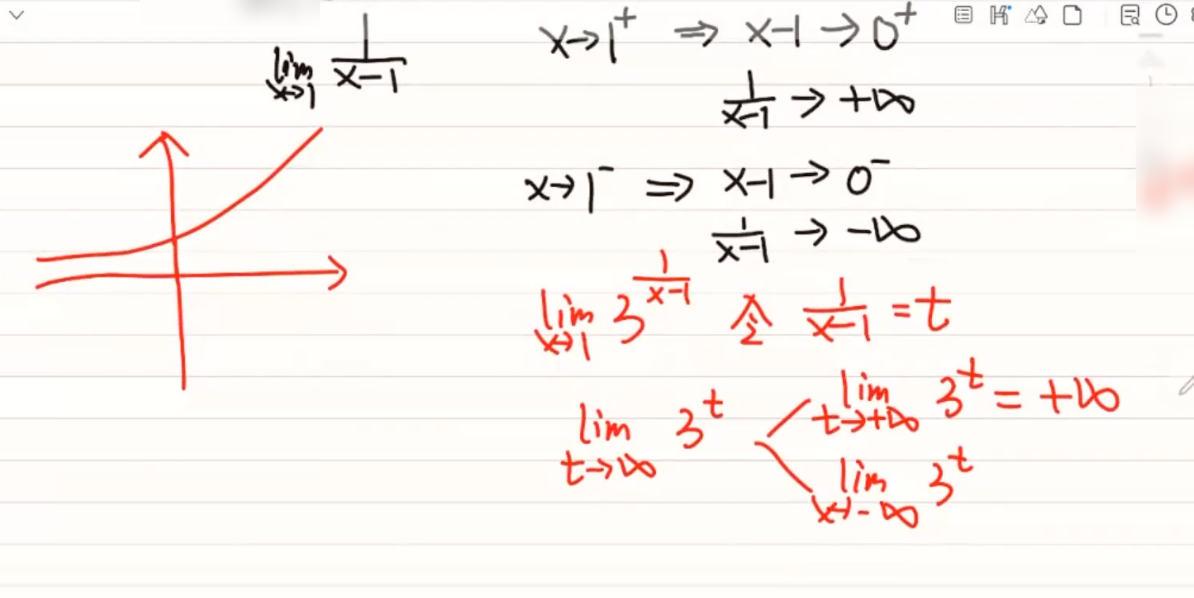 lim x→1 1/(x-1)
x→1⁺ ⇒ x-1→0⁺
1/(x-1) → +∞
x→1⁻ ⇒ x-1→0⁻
1/(x-1) → -∞
lim x→1 3^(1/(x-1)) 令 1/(x-1) = t
lim t→∞ 3^t
lim t→+∞ 3^t = +∞
lim x→-∞ 3^t